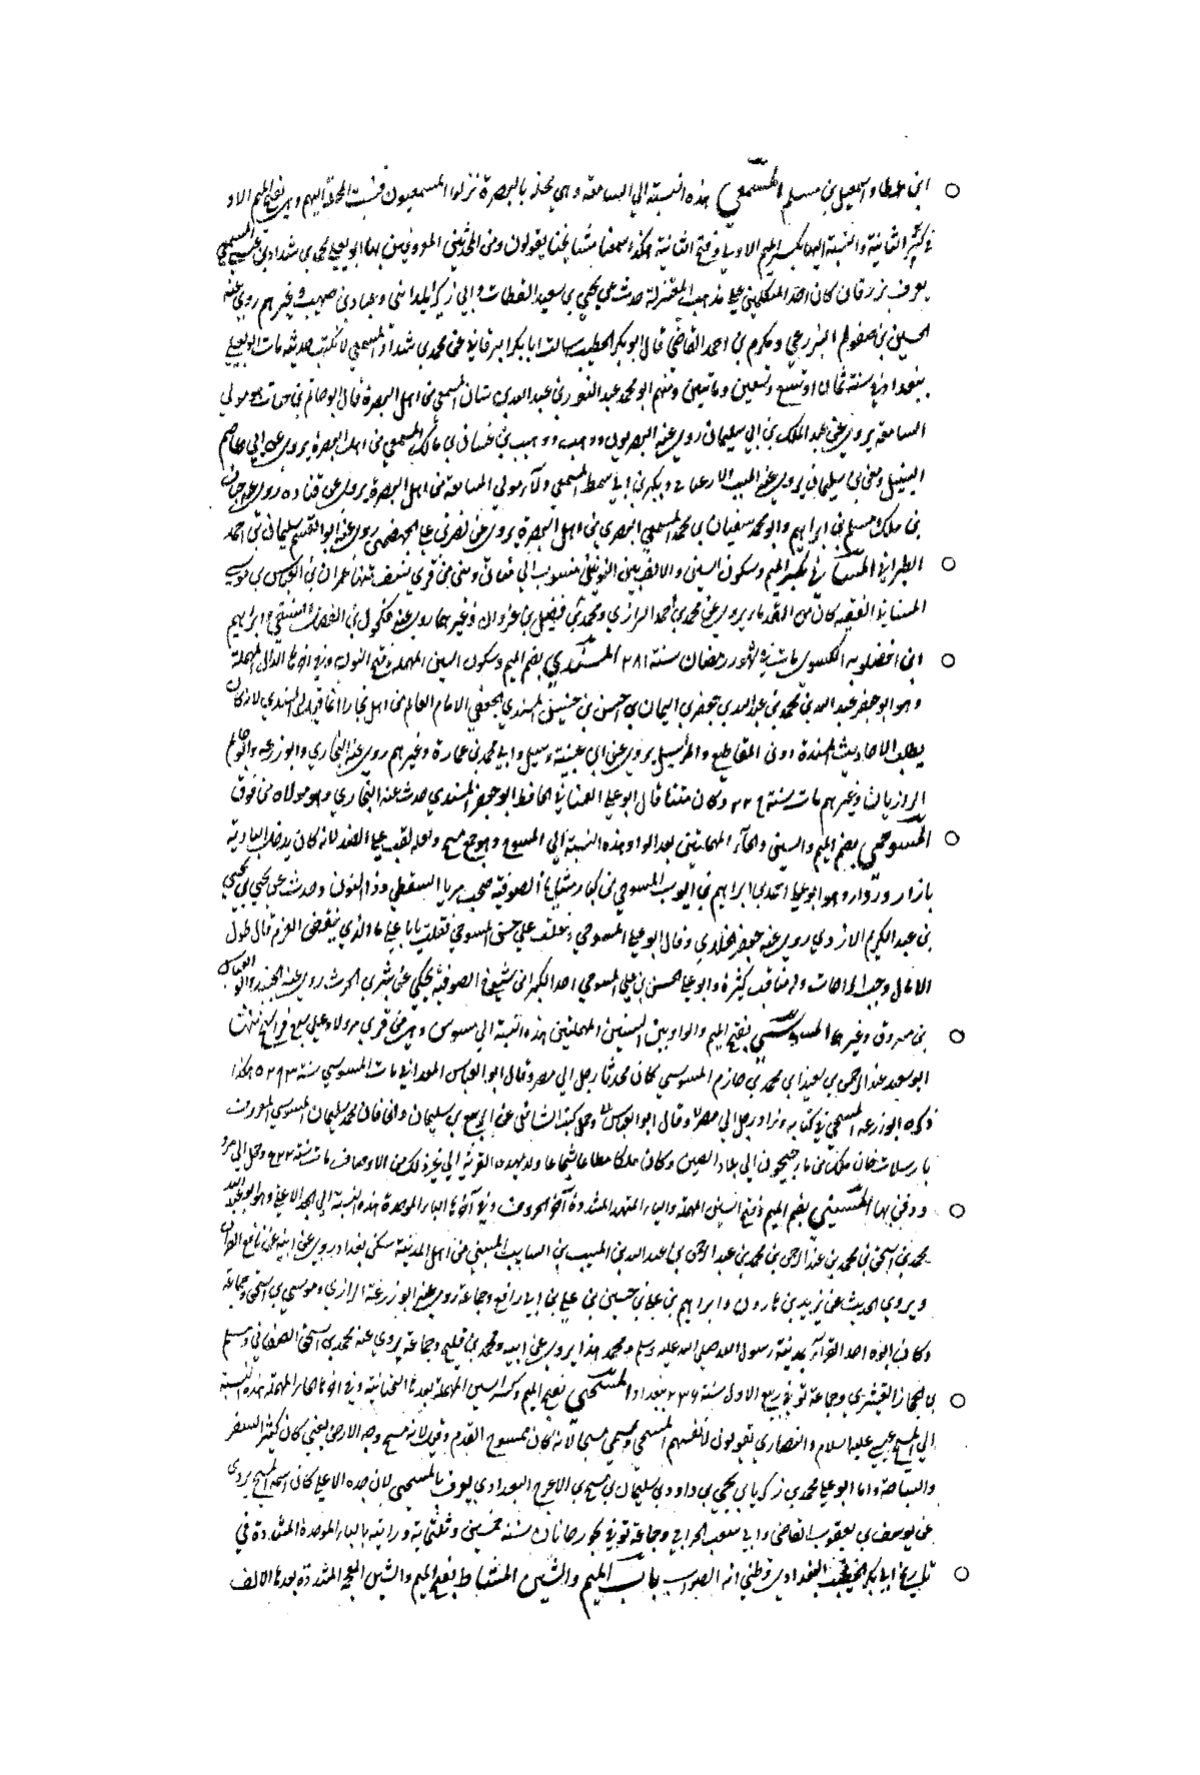 ابن عطا واسمعيل بن مسلم المسمعي هذه النسبة الي المسامعة وهي محلة بالبصرة نزلها المسمعيون فنسبت المحلة اليهم وهي بفتح الميم الاو
وكسر الثانية والنسبة اليها بكسر الميم الاولي وفتح الثانية هكذا سمعنا مشايخنا يقولون ومن المحدثين المعروفين بها ابو يعلي محمد بن شداد بن عيسي المسمعي
يعرف بزرقان كان احد المتكلمين علي مذهب المعتزلة حدث عن يحيي بن سعيد القطان وابي زكير المدايني وعباد بن صهيب وغيرهم روي عنه
الحسين بن صفوان البرذعي ومكرم بن احمد القاضي قال ابو بكر الخطيب سالت ابا بكر البرقاني عن محمد بن شداد المسمعي لا نكتب حديثه مات ابو يعلي
ببغداد في سنة ثمان او تسع وتسعين ومايتين ومنهم ابو محمد عبد النور بن عبد الله بن سنان المسمعي من اهل البصرة قال ابو حاتم بن حبان هو مولي
المسامعة يروي عن عبد الملك بن ابي سليمان روي عنه البصريون ووهب بن غسان بن مالك المسمعي من اهل البصرة يروي عن ابي عاصم
النبيل ومعن بن سليمان يروي عنه وبكر بن ابي سمط المسمعي مولي المسامعة من اهل البصرة يروي عن قتادة روي عنه حبان
بن هلال ومسلم بن ابراهيم وابو محمد سفيان بن محمد المسمعي البصري من اهل البصرة يروي عن نصر بن علي الجهضمي روي عنه ابو القسم سليمان بن احمد
الطبراني المسناني بكسر الميم وسكون السين والالف بين النونين منسوب الي مسنان وهي من قري نسف منها عمران بن العباس بن موسي
المسناني الفقيه كان من القدماء يروي عن محمد بن حميد الرازي ومحمد بن فضيل بن غزوان وغيرهما روي عنه مكحول بن الفضل النسفي وابراهيم
ابن في شهر رمضان سنة ٢٨١ المسندي بضم الميم وسكون السين المهملة وفتح النون وفي اخرها الدال المهملة
وهو ابو جعفر عبد الله بن محمد بن عبد الله بن جعفر بن اليمان بن اخنس بن خنيس المسندي الجعفي الامام العالم من اهل بخارا انما قيل له المسندي لانه كان
يطلب الاحاديث المسندة دون المقاطيع والمراسيل يروي عن ابن عيينة وغيرهم روي عنه البخاري وابو زرعة وابو حاتم
الرازيان وغيرهم مات سنة ٢٢٩ وكان متقنا قال ابو علي الغساني الحافظ ابو جعفر المسندي حدث عنه البخاري وهو مولاه من فوق
المسوحي بضم الميم والسين والحاء المهملتين بعد الواو هذه النسبة الي المسوح وهو جمع مسح ولعله لقب علي الضد لانه كان يدخل البادية
بازار ورداء وهو ابو علي احمد بن ابراهيم بن ايوب المسوحي من كبار مشايخ الصوفية صحب سريا السقطي وذا النون وحدث عن يحيي بن يحيي
بن عبد الكريم الازدي روي عنه جعفر الخلدي وقال ابو علي المسوحي دخلت علي حسن المسوحي فقلت يا ابا علي ما الذي ينقض العزم قال طول
الامال وحب الراحات وله مناقب كثيرة وابو علي الحسن بن علي المسوحي احد الكبراء من شيوخ الصوفية يحكي عن بشر بن الحرث روي عنه الجنيد وابو العباس
بن مسروق وغيرهما المسوسي بفتح الميم والواو بين السينين المهملتين هذه النسبة الي مسوس وهي من قري مرو علي سبع فراسخ منها
ابو سعيد عبد الرحمن بن سعيد بن محمد بن حازم المسوسي كان محدثا رحل الي مصر وقال ابو العباس المعداني مات المسوسي سنة ٢٩٣ هكذا
ذكره ابو زرعة المسيحي في كتابه وزاد رحل الي مصر وقال ابو العباس وحمل كتب الشافعي عن الربيع بن سليمان واني فان محمد سليمان المسوسي المعروف
بارسلان خان ملك من ما جيحون الي بلاد الصين وكان ملكا مطاعا شجاعا ولد بهذه القرية الي غير ذلك من الاوصاف مات سنة وحمل الي مرو
ودفن بها المسيبي بضم الميم وفتح السين المهملة والياء المشددة اخر الحروف وفي اخرها الباء الموحدة هذه النسبة الي الجد الاعلي وهو ابو عبد الله
محمد بن اسحق بن محمد بن عبد الرحمن بن عبد الله بن المسيب بن السايب المسيبي من اهل المدينة سكن بغداد يروي عن ابيه عن نافع القران
ويروي الحديث عن يزيد بن هارون وابراهيم بن علي بن حسين بن علي بن ابي رافع وجماعة روي عنه ابو زرعة الرازي وموسي بن اسحق وجماعة
وكان ابوه احد القراء بمدينة رسول الله صلي الله عليه وسلم ومحمد هذا يروي عن ابيه ومحمد بن فليح وجماعة يروي عنه محمد بن اسحق الصغاني ومسلم
بن الحجاج القشيري وجماعة توفي في ربيع الاول سنة ٢٣٦ ببغداد المسيحي بفتح الميم وكسر السين المهملة بعدها التحتانية وفي اخرها الحاء المهملة هذه النسبة
الي المسيح عيسي عليه السلام والنصاري يقولون لانفسهم المسيحي وسمي مسيحا لانه كان ممسوح القدم وقيل لانه مسح وجه الارض يعني كان كثير السفر
والسياحة واما ابو علي محمد بن زكريا بن يحيي بن داود بن سليمان بن مسيح بن الاعرج البغدادي يعرف بالمسيحي لان جده الاعلي كان اسمه المسيح يروي
عن يوسف بن يعقوب القاضي وابي شعيب الحراني وجماعة توفي بجوزجانان سنة خمسين وثلثماية ورايته بالباء الموحدة المشددة في
تاريخ ابي بكر الخطيب البغدادي وظني انه الصواب باب الميم والشين المشاط بفتح الميم والشين المعجمة المشددة بعدها الالف